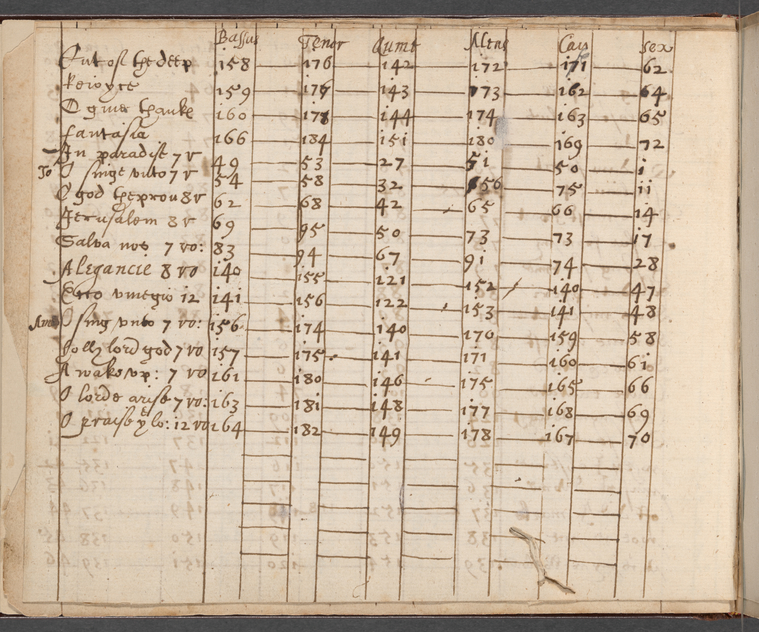 Bassus Tenor Quint Altus Cant Sex
Out of the deep 158 176 142 172 171 62
Reioyce 159 177 143 173 162 64
O giue thanke 160 178 144 174 163 65
fantasia 166 184 151 180 169 72
In paradise 7 v 49 53 27 51 50 1
To O singe vnto 7 v 54 58 32 56 75 11
O god the prou 8 v 62 68 42 65 66 14
Jerusalem 8 v 69 95 50 73 73 17
Salva nos 7 vo: 83 94 67 91 74 28
Alegancie 8 vo 140 155 121 152 140 47
Ecce 12 141 156 122 153 141 48
O sing vnto 7 vo: 156 174 140 170 159 58
Holly lord god 7 vo 157 175 141 171 160 61
Awake vp: 7 vo 161 180 146 175 165 66
O lorde arise 7 vo: 163 181 148 177 168 69
O praise y lo: 12 vo 164 182 149 178 167 70